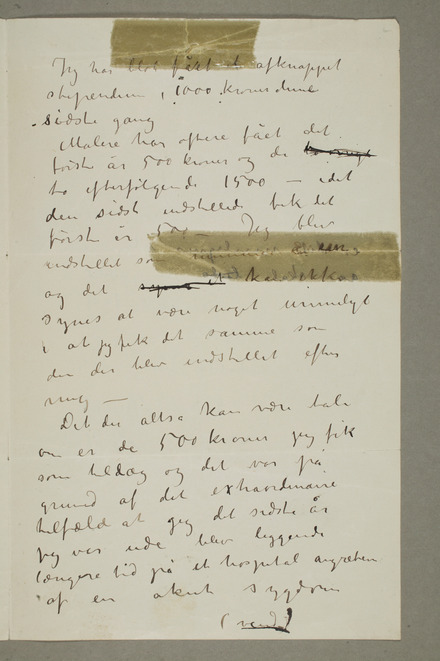 Jeg har blot fået et afknappet
stipendium, 1000 kroner denne
sidste gang
Malere har oftere fået det
første år 500 kroner og de
to efterfølgende 1500 — idet
den sidst indstillede fik det
første år 500 — Jeg blev
indstillet som
og det
synes at være noget urimeligt
i at jeg fik det samme som
den der blev indstillet efter
mig —
Det der altså kan være tale
om er de 500 kroner jeg fik
som tillæg og det var på
grund af det extraordinaire
tilfælde at jeg det sidste år
jeg var ude blev liggende
længere tid på et hospital angreben
af en akut sygdom
(vend)